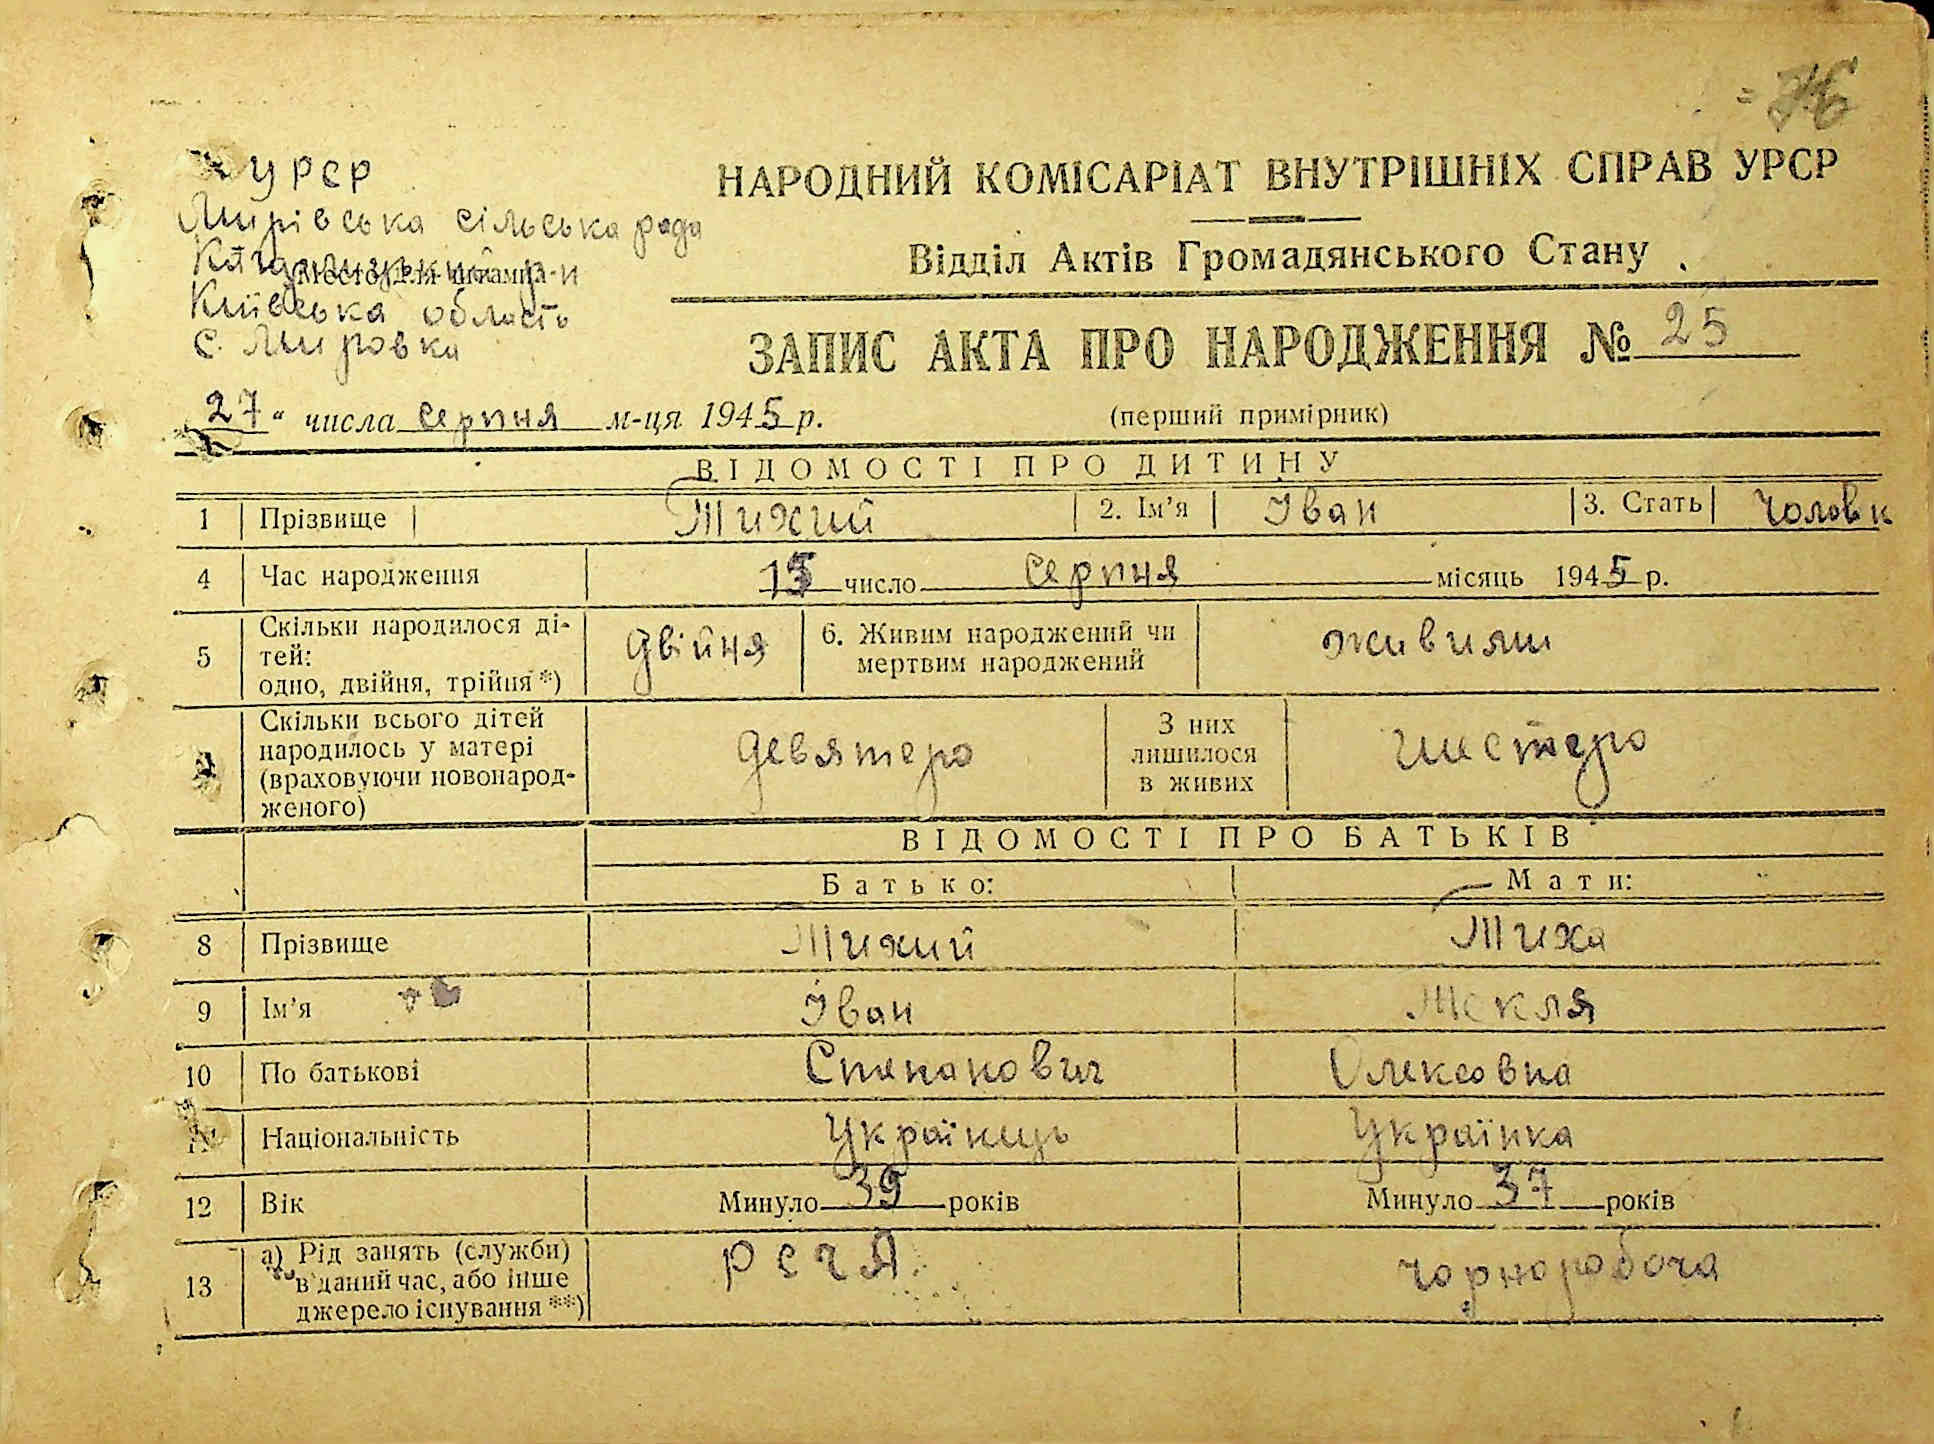 УРСР
НАРОДНИЙ КОМІСАРІАТ ВНУТРІШНІХ СПРАВ УРСР
Мирівська сільська рада
Відділ Актів Громадянського Стану
Кагарлицький р-н
Місто для штампа
Київська область
с. Мировка
ЗАПИС АКТА ПРО НАРОДЖЕННЯ № 25
27 " числа серпня м-ця 1945 р.
(перший примірник)
ВІДОМОСТІ ПРО ДИТИНУ
1 Прізвище Тихий 2. Ім'я Іван 3. Стать чоловк
4 Час народження 15 число серпня місяць 1945 р.
5 Скільки народилося ді-
тей:
одно, двійня, трійня *) двійня 6. Живим народжений чи
мертвим народжений живими
Скільки всього дітей
народилось у матері
(враховуючи новонарод-
женого) девятеро З них
лишилося
в живих шестеро
ВІДОМОСТІ ПРО БАТЬКІВ
Батько: Мати:
8 Прізвище Тихий Тиха
9 Ім'я Іван Текля
10 По батькові Степанович Олексовна
Національність Українець Українка
12 Вік Минуло 39 років Минуло 37 років
13 а) Рід занять (служби)
в даний час, або інше
джерело існування **) РСЧА чорноробоча